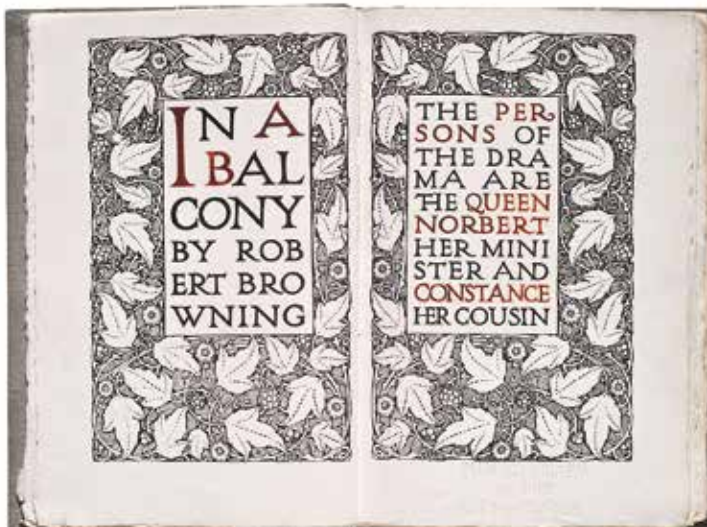 IN A
BAL
CONY
BY ROB
ERT BRO
WNING
THE PER
SONS OF
THE DRA
MA ARE
THE QUEEN
NORBERT
HER MINI
STER AND
CONSTANCE
HER COUSIN